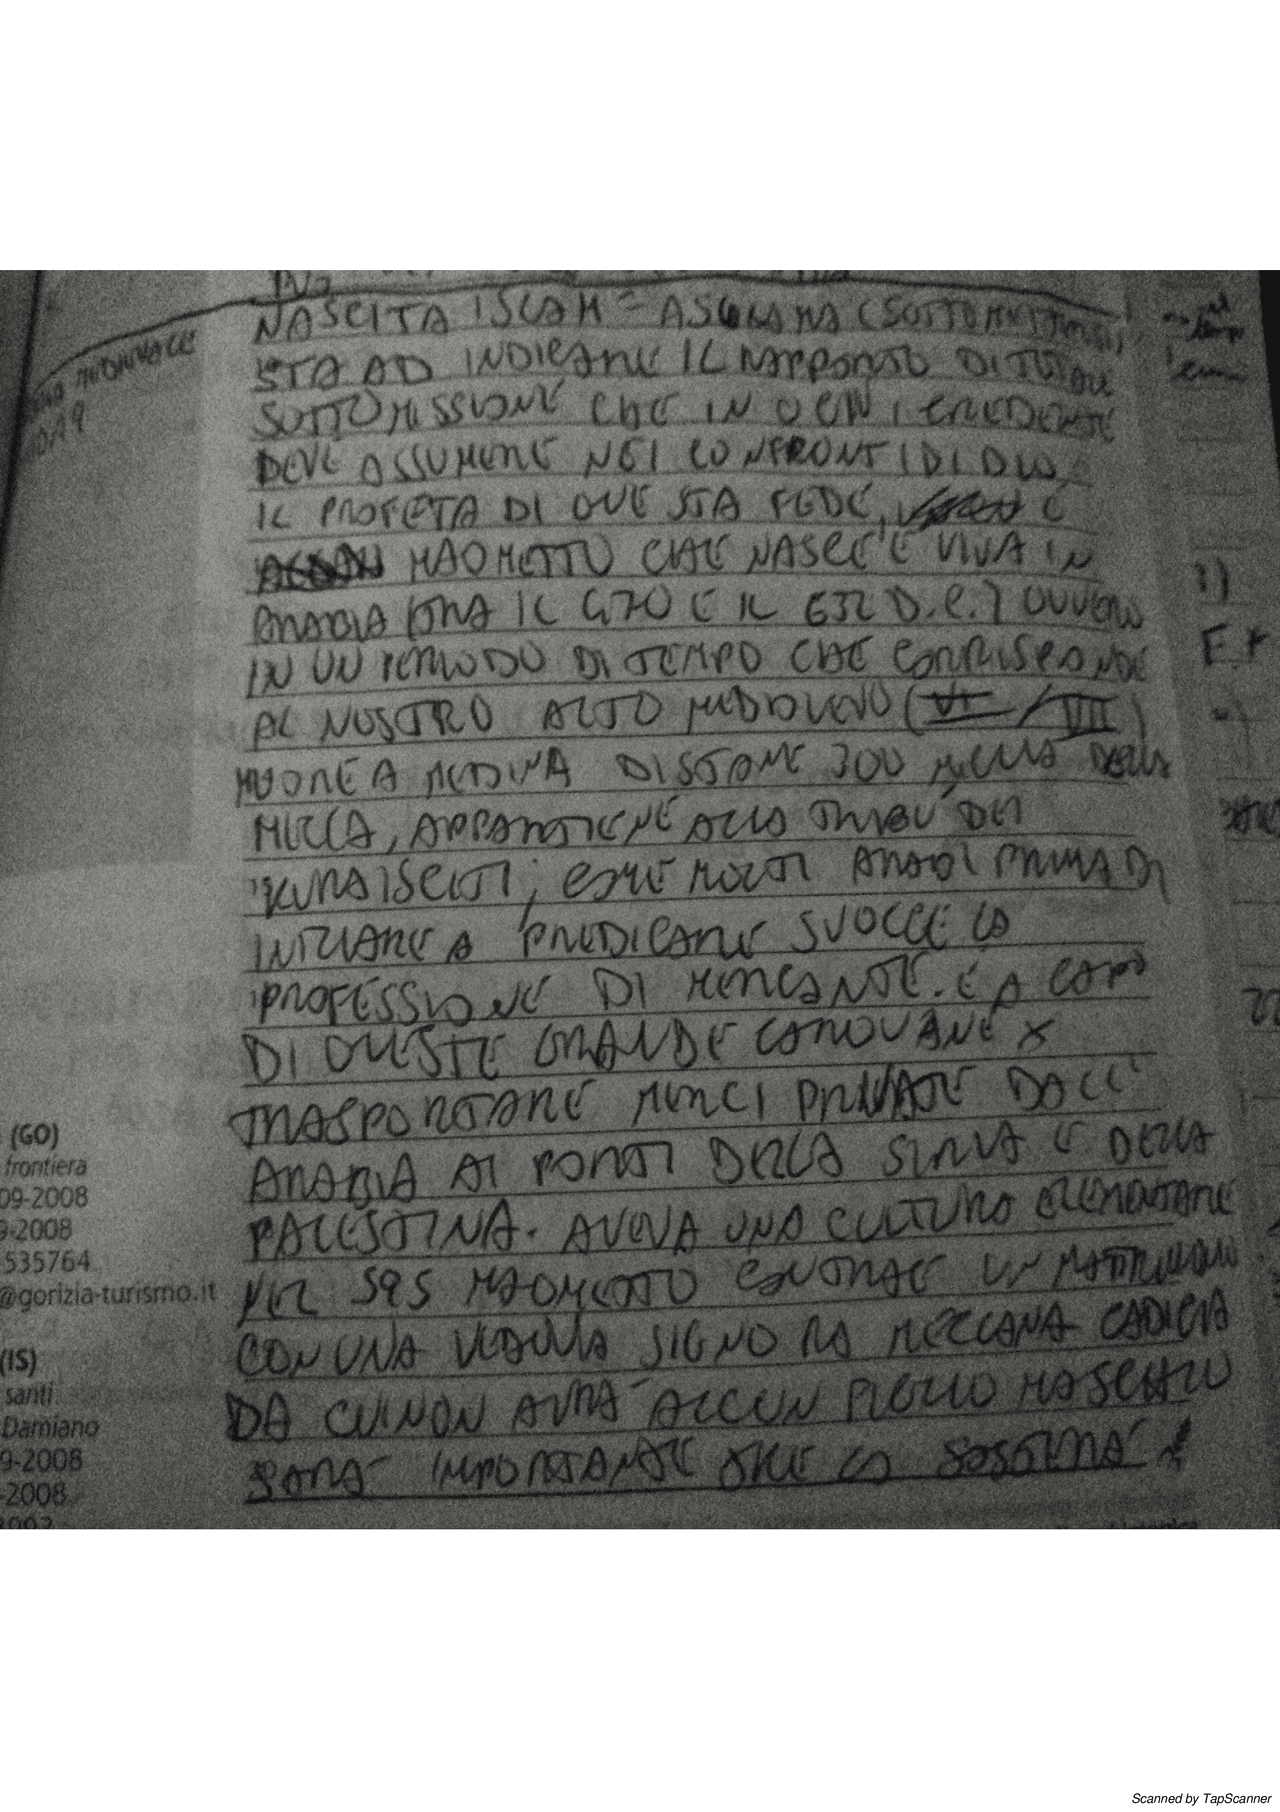 NASCITA ISLAM = ASLAMA (SOTTOMETTERSI)
STA AD INDICARE IL RAPPORTO DI TOTALE
SOTTOMISSIONE CHE IN OGNI CREDENTE
DEVE ASSUMERE NEI CONFRONTI DI DIO,
IL PROFETA DI QUESTA FEDE, È
MAOMETTO CHE NASCE E VIVA IN
ARABIA (TRA IL 570 E IL 632 D.C.) OVVERO
IN UN PERIODO DI TEMPO CHE CORRISPONDE
AL NOSTRO ALTO MEDIOEVO (VI / VII)
MUORE A MEDINA DISTANE 300 MIGLIA DALLA
MECCA, APPARTIENE ALLA TRIBU' DEI
KURAISCITI, COME MOLTI ARABI PRIMA DI
INIZIARE A PREDICARE SVOLGE LA
PROFESSIONE DI MERCANTE. È A CAPO
DI QUESTE GRANDE CAROVANE X
TRASPORTARE MERCI PRIVATE DALL'
ARABIA AI PORTI DELLA SIRIA E DELLA
PALESTINA. AVEVA UNA CULTURA ELEMENTARE
NEL 595 MAOMETTO CONTRAE UN MATRIMONIO
CON UNA VEDOVA SIGNORA MECCANA CADIGIA
DA CUI NON AVRA' ALCUN FIGLIO MASCHIO
SARA' IMPORTANTE CHE LO SOSTERRA'
(GO)
frontiera
09-2008
9-2008
535764
@gorizia-turismo.it
(IS)
santi
Damiano
9-2008
-2008
Scanned by TapScanner